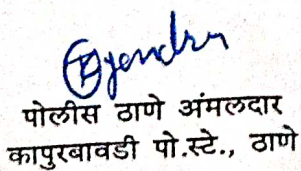 पोलीस ठाणे अंमलदार
कापुरबावडी पो.स्टे., ठाणे